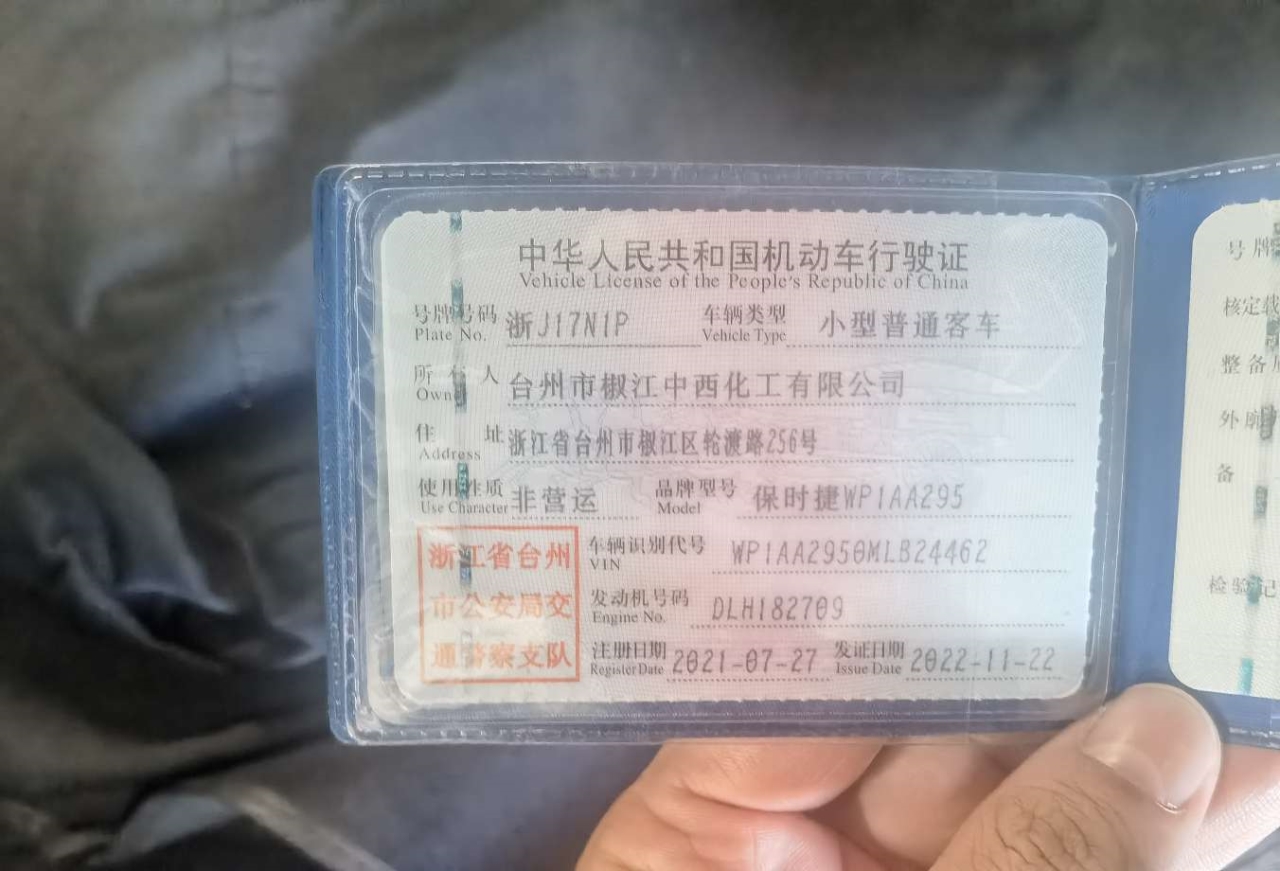 中华人民共和国机动车行驶证
Vehicle License of the People's Republic of China
号牌号码 浙J17N1P 车辆类型 小型普通客车
Plate No. Vehicle Type
所有人 台州市椒江中西化工有限公司
Owner
住址 浙江省台州市椒江区轮渡路256号
Address
使用性质 非营运 品牌型号 保时捷WP1AA295
Use Character Model
浙江省台州
市公安局交
通警察支队
车辆识别代号 WP1AA2950MLB24462
VIN
发动机号码 DLH182709
Engine No.
注册日期 2021-07-27 发证日期 2022-11-22
Register Date Issue Date
号牌
核定载
整备
外廓
备
检验记